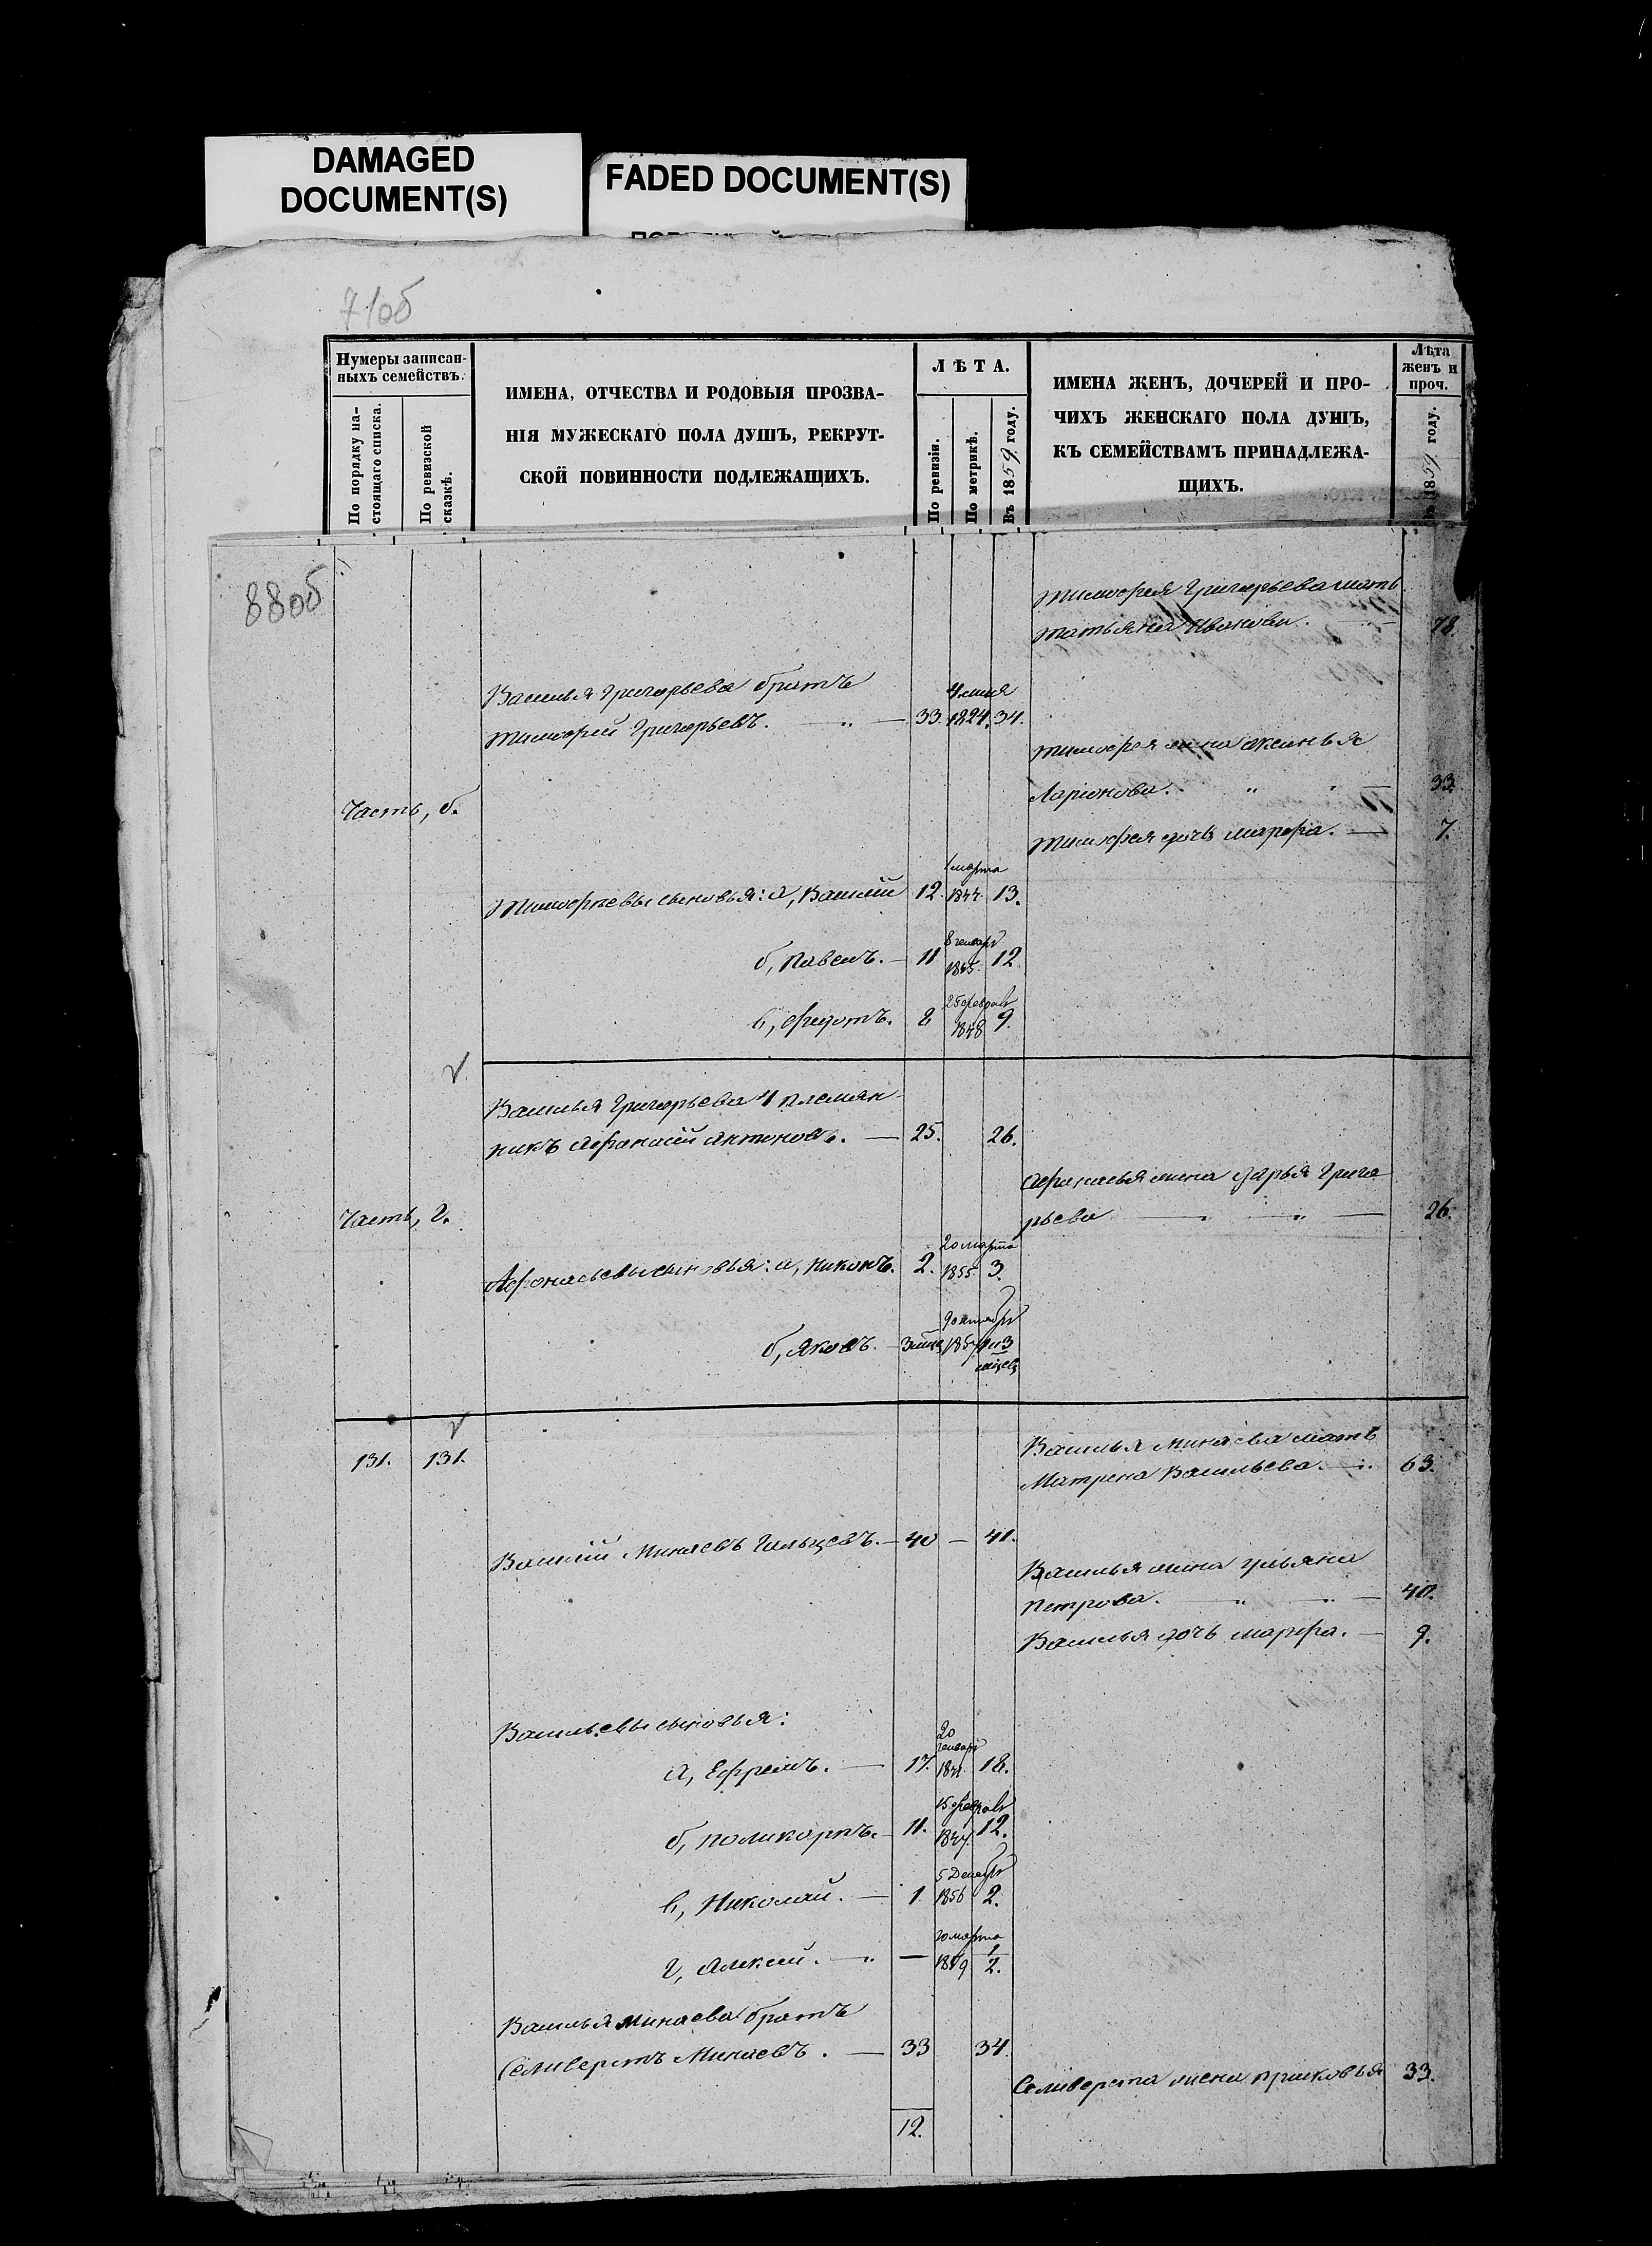 DAMAGED
DOCUMENT(S)
FADED DOCUMENT(S)
71об
Нумеры записан-
ныхъ семействъ.
По порядку на-
стоящаго списка.
По ревизской
сказкѣ.
ИМЕНА, ОТЧЕСТВА И РОДОВЫЯ ПРОЗВА-
НІЯ МУЖЕСКАГО ПОЛА ДУШЪ, РЕКРУТ-
СКОЙ ПОВИННОСТИ ПОДЛЕЖАЩИХЪ.
ЛѢТА.
По ревизіи.
По метрикѣ.
Въ 1859. году.
ИМЕНА ЖЕНЪ, ДОЧЕРЕЙ И ПРО-
ЧИХЪ ЖЕНСКАГО ПОЛА ДУШЪ,
КЪ СЕМЕЙСТВАМЪ ПРИНАДЛЕЖА-
ЩИХЪ.
Лѣта
женъ и
проч.
Въ 1859 году.
88об
Тимофея Григорьева мать
Татьяна Иванова. 78.
Василья Григорьева братъ
Тимофей Григорьевъ. 33. 1824. 34.
Тимофея жена Аксинья
Ларіонова. 33.
Часть, б.
Тимофея дочь Марфа. 7.
1 марта
Тимофеевы сыновья: а, Василій 12. 1844. 13.
8 генваря
б, Павелъ. 11 1845. 12.
25 февраля
в, Федотъ. 8 1848 9.
Василья Григорьева 4 племян-
никъ Афанасій Антоновъ. 25. 26.
Афанасья жена Дарья Григо
рьева 26.
Часть, г.
20 марта
Афонасьевы сыновья: а, Никонъ. 2. 1855. 3.
9 октября
б, Яковъ. 3 мѣсц 1857 1 и 3
мѣсец
131. 131.
Василья Минаева мать
Матрена Васильева. 63.
Василій Минаевъ Гальцевъ. 40 — 41.
Василья жена Ульяна
Петрова. 40.
Василья дочь Марфа. 9.
Васильевы сыновья:
20
генваря
а, Ефремъ. 17. 1841. 18.
15 февраля
б, Поликарпъ. 11. 1847. 12.
5 Декабря
в, Николай. 1 1856 2.
марта
г, Алексѣй. — 1859 1/2.
Василья Минаева братъ
Селиверстъ Минаевъ. 33 34.
Селиверста жена Прасковья 33.
12.